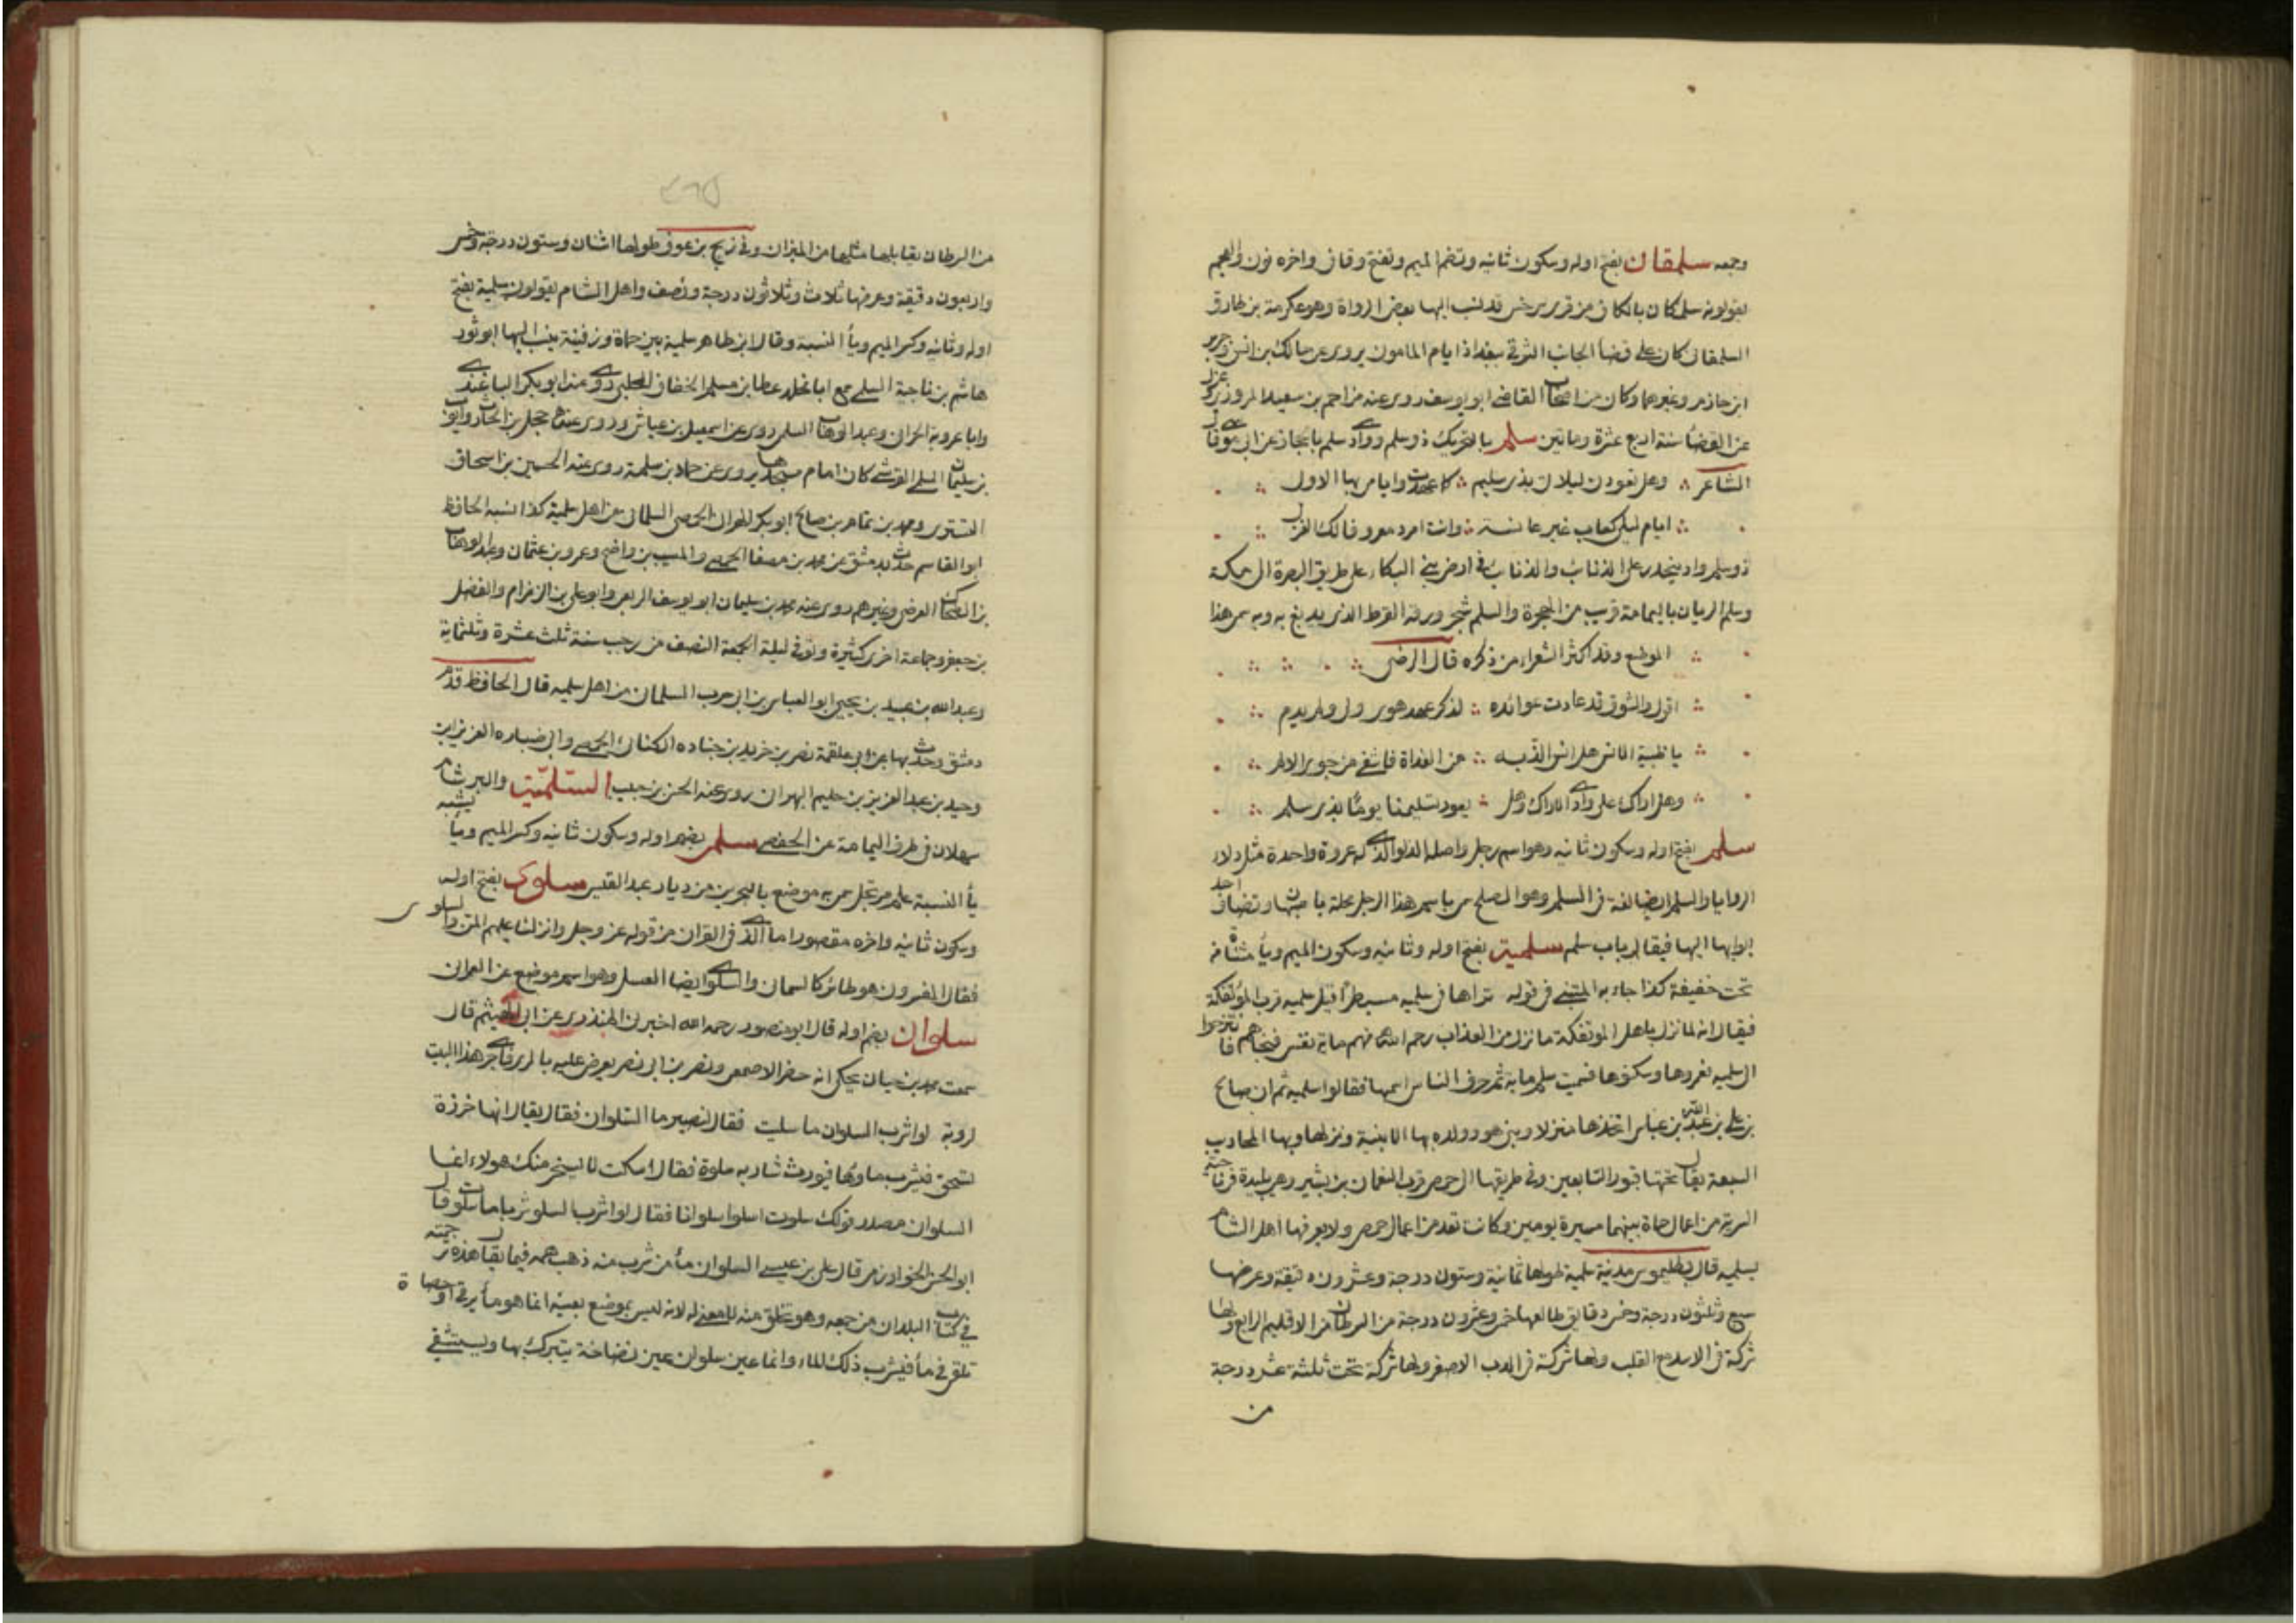 وجمعه سلمقان بفتح اوله وسكون ثانيه وتضم الميم وتفتح وقاف واخره نون والعجم
يقولونه سلمكان بالكاف من قرى سرخس قد نسب اليها بعض الرواة وهو عكرمة بن طارق
السلمقانى كان على قضأ الجانب الشرقى ببغداد ايام المامون يروى عن مالك بن انس وجرير
ابن حازم وغيرهما وكان من اصحاب القاضى ابو يوسف روى عنه مزاحم بن سعيد المروزى عزل
عن القضأ سنة اربع عشرة وماتين سلم بالتحريك ذو سلم ووادى سلم بالحجاز عن ابى موسى وقال
الشاعر وهل تعودن ليلاتى بذى سليم كما عهدت وايامى بها الاول
ايام ليلى كعاب غير عانسة وانت امرد معروف لك الغزل
ذو سلم واد ينحدر على الذنائب والذنائب فى ارض بنى البكاء على طريق البصرة الى مكة
وسلم الريان باليمامة قريب من الهجرة والسلم شجر ورقه القرظ الذى يدبغ به وبه سمى هذا
الموضع وقد اكثر الشعراء من ذكره قال الرضى
اقول والشوق قد عادت عوائده لذكر عهد هوى ولى ولم يدم
يا ظبية الانس هل انس الذ به من الغداة فاشفى من جوى الالم
وهل اراك على وادى الاراك وهل يعود تسليمنا يوما بذى سلم
سلم بفتح اوله وسكون ثانيه وهو اسم رجل واصله الدلو الذى له عروة واحدة مثل دلاء
الروايا والسلم ايضا لغة فى السلم وهو الصلح سمى باسم هذا الرجل محلة باصبهان وتضاف احد
ابوابها اليها فيقال باب سلم سلمية بفتح اوله وثانيه وسكون الميم ويأ مثناة من
تحت خفيفة كذا جاء به المتنبى فى قوله تراها فى سلمية مسبطرا قيل سلمية قرب الموتفكة
فيقال انه لما نزل باهل الموتفكة ما نزل من العذاب رحم الله منهم ماية نفس فنجاهم فانتزحوا
الى سلمية فعمروها وسكنوها فسميت سلم ماية ثم حرف الناس اسمها فقالوا سلمية ثم ان صالح
بن على بن عبد الله بن عباس اتخذها منزلا وبنى هو وولده بها الابنية ونزلها وبها المحاريب
السبعة يقال تحتها قبور التابعين وفى طريقها الى حمص قرب النعمان بن بشير وهى بليدة فى ناحية
البرية من اعمال حماة بينهما مسيرة يومين وكانت تعد من اعمال حمص ولا يعرفها اهل الشام
بسلمية قال بطليموس مدينة سلمية طولها ثمانية وستون درجة وعشرون دقيقة وعرضها
سبع وثلثون درجة وخمس دقايق طالعها خمس وعشرون درجة من السرطان من الاقليم الرابع ولها
شركة فى الاسد مع القلب ولها شركة فى الدب الاصغر ولها شركة تحت ثلثة عشر درجة
من
٤٦٥
من السرطان يقابلها مثلها من الميزان وفى زيج بن عوف طولها اثنان وستون درجة وخمس
واربعون دقيقة وعرضها ثلاث وثلاثون درجة ونصف واهل الشام يقولون سلمية بفتح
اوله وثانيه وكسر الميم ويأ النسبة وقال ابن طاهر سلمية بين حماة ورفنية ينسب اليها ابو ثور
هاشم بن ناجية السلمى سمع ابا مخلد عطا بن مسلم الخفاف الحلبى روى عنه ابو بكر الباغندى
وابا عروبة الحرانى وعبد الوهاب السلمى روى عن اسمعيل بن عياش وروى عنه محمد بن الحارث وايوب
بن سليمان السلمى القرشى كان امام مسجدها يروى عن حماد بن سلمة روى عنه الحسين بن اسحاق
التسترى ومحمد بن تمام بن صالح ابو بكر الحرانى الحمصى السلمانى من اهل سلمية كذا نسبه الحافظ
ابو القاسم حدث بدمشق عن محمد بن مصفا الحمصى والمسيب بن واضح وعمرو بن عثمان وعبد الوهاب
بن الضحاك العرضى وغيرهم روى عنه محمد بن سليمان ابو يوسف الربعى وابو على بن الزمزام والفضل
بن جعفر وجماعة اخرى كثيرة وتوفى ليلة الجمعة النصف من رجب سنة ثلث عشرة وثلثماية
وعبد الله بن عبيد بن يحيى ابو العباس بن ابى حرب السلمانى من اهل سلمية قال الحافظ قدم
دمشق وحدث بها عن ابى علقمة نصر بن خريد بن جناده الكنانى الحمصى وابى ضباره العزيز بن
وحيد بن عبد العزيز بن حليم البهرانى روى عنه الحسن بن حبيب السلمية والبر شام
سهلان فى طرف اليمامة عن الحفصى سلمى بضم اوله وسكون ثانيه وكسر الميم ويأ يشبه
يأ النسبة علم مرتجل سمى به موضع بالبحرين من ديار عبد القيس سلوى بفتح اوله
وسكون ثانيه واخره مقصور اما الذى فى القران من قوله عز وجل وانزلنا عليهم المن والسلوى
فقال المفسرون هو طائر كالسمانى والسلوى ايضا العسل وهو اسم موضع عن العمرانى
سلوان بضم اوله قال ابو منصور رحمه الله اخبرنى المنذرى عن ابى الهيثم قال
سمعت محمد بن حيان يحكى انه حضر الاصمعى ونصر بن ابى نصر يعرض عليه بالرى فاجرى هذا البيت
لروبة لو اشرب السلوان ما سليت فقال لنصير ما السلوان فقال يقال انها خرزة
تسحق فيشرب ماؤها فيورث شاربه سلوة فقال اسكت لا يسخر منك هولاء انما
السلوان مصدر قولك سلوت اسلوا سلوانا فقال لو اشرب السلو شربا ما سلوت وقال
ابو الحسن الخوارزمى قال على بن عيسى السلوان مأ من شرب منه ذهب همه فيما يقال هذه ترجمته
فى كتاب البلدان من جمعه وهو تخلق منه لا معنى له لانه ليس بموضع بعينه انما هو مأ يرقى او حصاة
تلقى فى مأ فيشرب ذلك الماء وانما عين سلوان عين نضاخة يتبرك بها ويستشفى